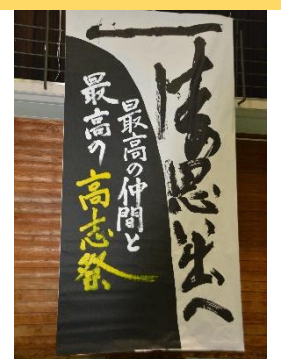 思い出へ
最高の仲間と
最高の高志祭